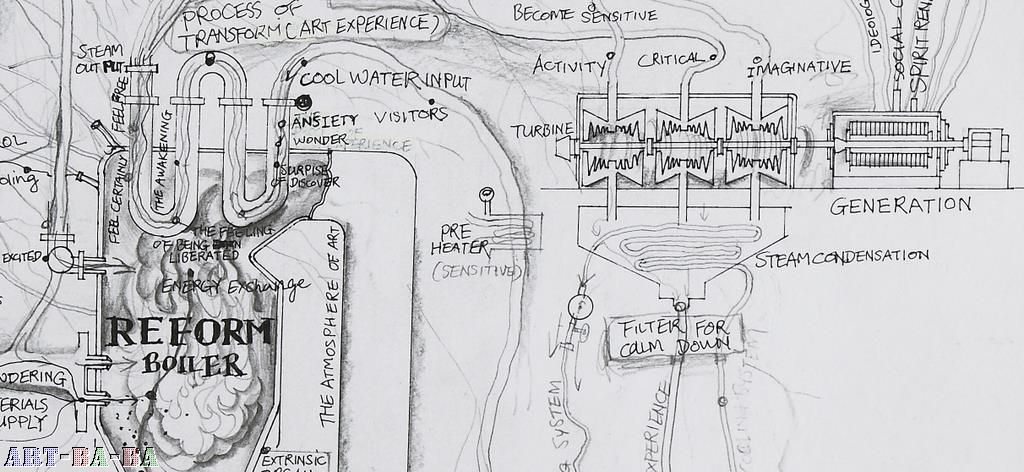 PROCESS OF
TRANSFORM (ART EXPERIENCE)
BECOME SENSITIVE
STEAM
OUT PUT
COOL WATER INPUT
ACTIVITY
CRITICAL
IMAGINATIVE
SOCIAL
FEEL FREE
THE AWAKENING
FEEL CERTAINLY
ANXIETY
WONDER
VISITORS
SURPISE
OF DISCOVER
TURBINE
GENERATION
THE FEELING
OF BEING
LIBERATED
ENERGY EXCHANGE
EXCITED
REFORM
BOILER
THE ATMOSPHERE OF ART
PRE
HEATER
(SENSITIVE)
STEAM CONDENSATION
FILTER FOR
CALM DOWN
SYSTEM
XPERIENCE
NDERING
ERIALS
UPPLY
EXTRINSIC
ART-BA-BA